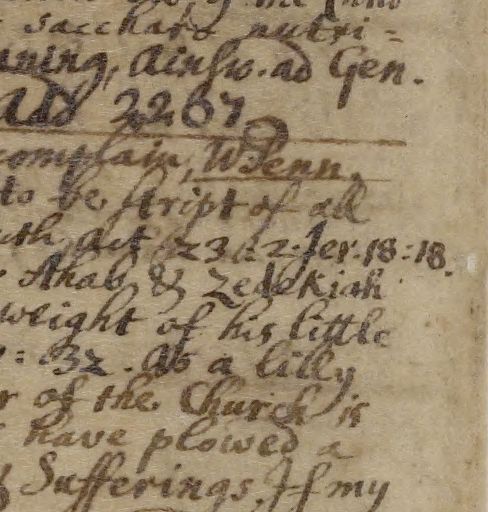 saccharo nutri=
ning, Ainsw. ad Gen.
2267
complain, W Penn.
to be stript of all
Act 23:2. Jer. 18:18.
Ahab & Zedekiah
weight of his little
: 32. As a lilly
of the Church is
have plowed a
Sufferings, If my